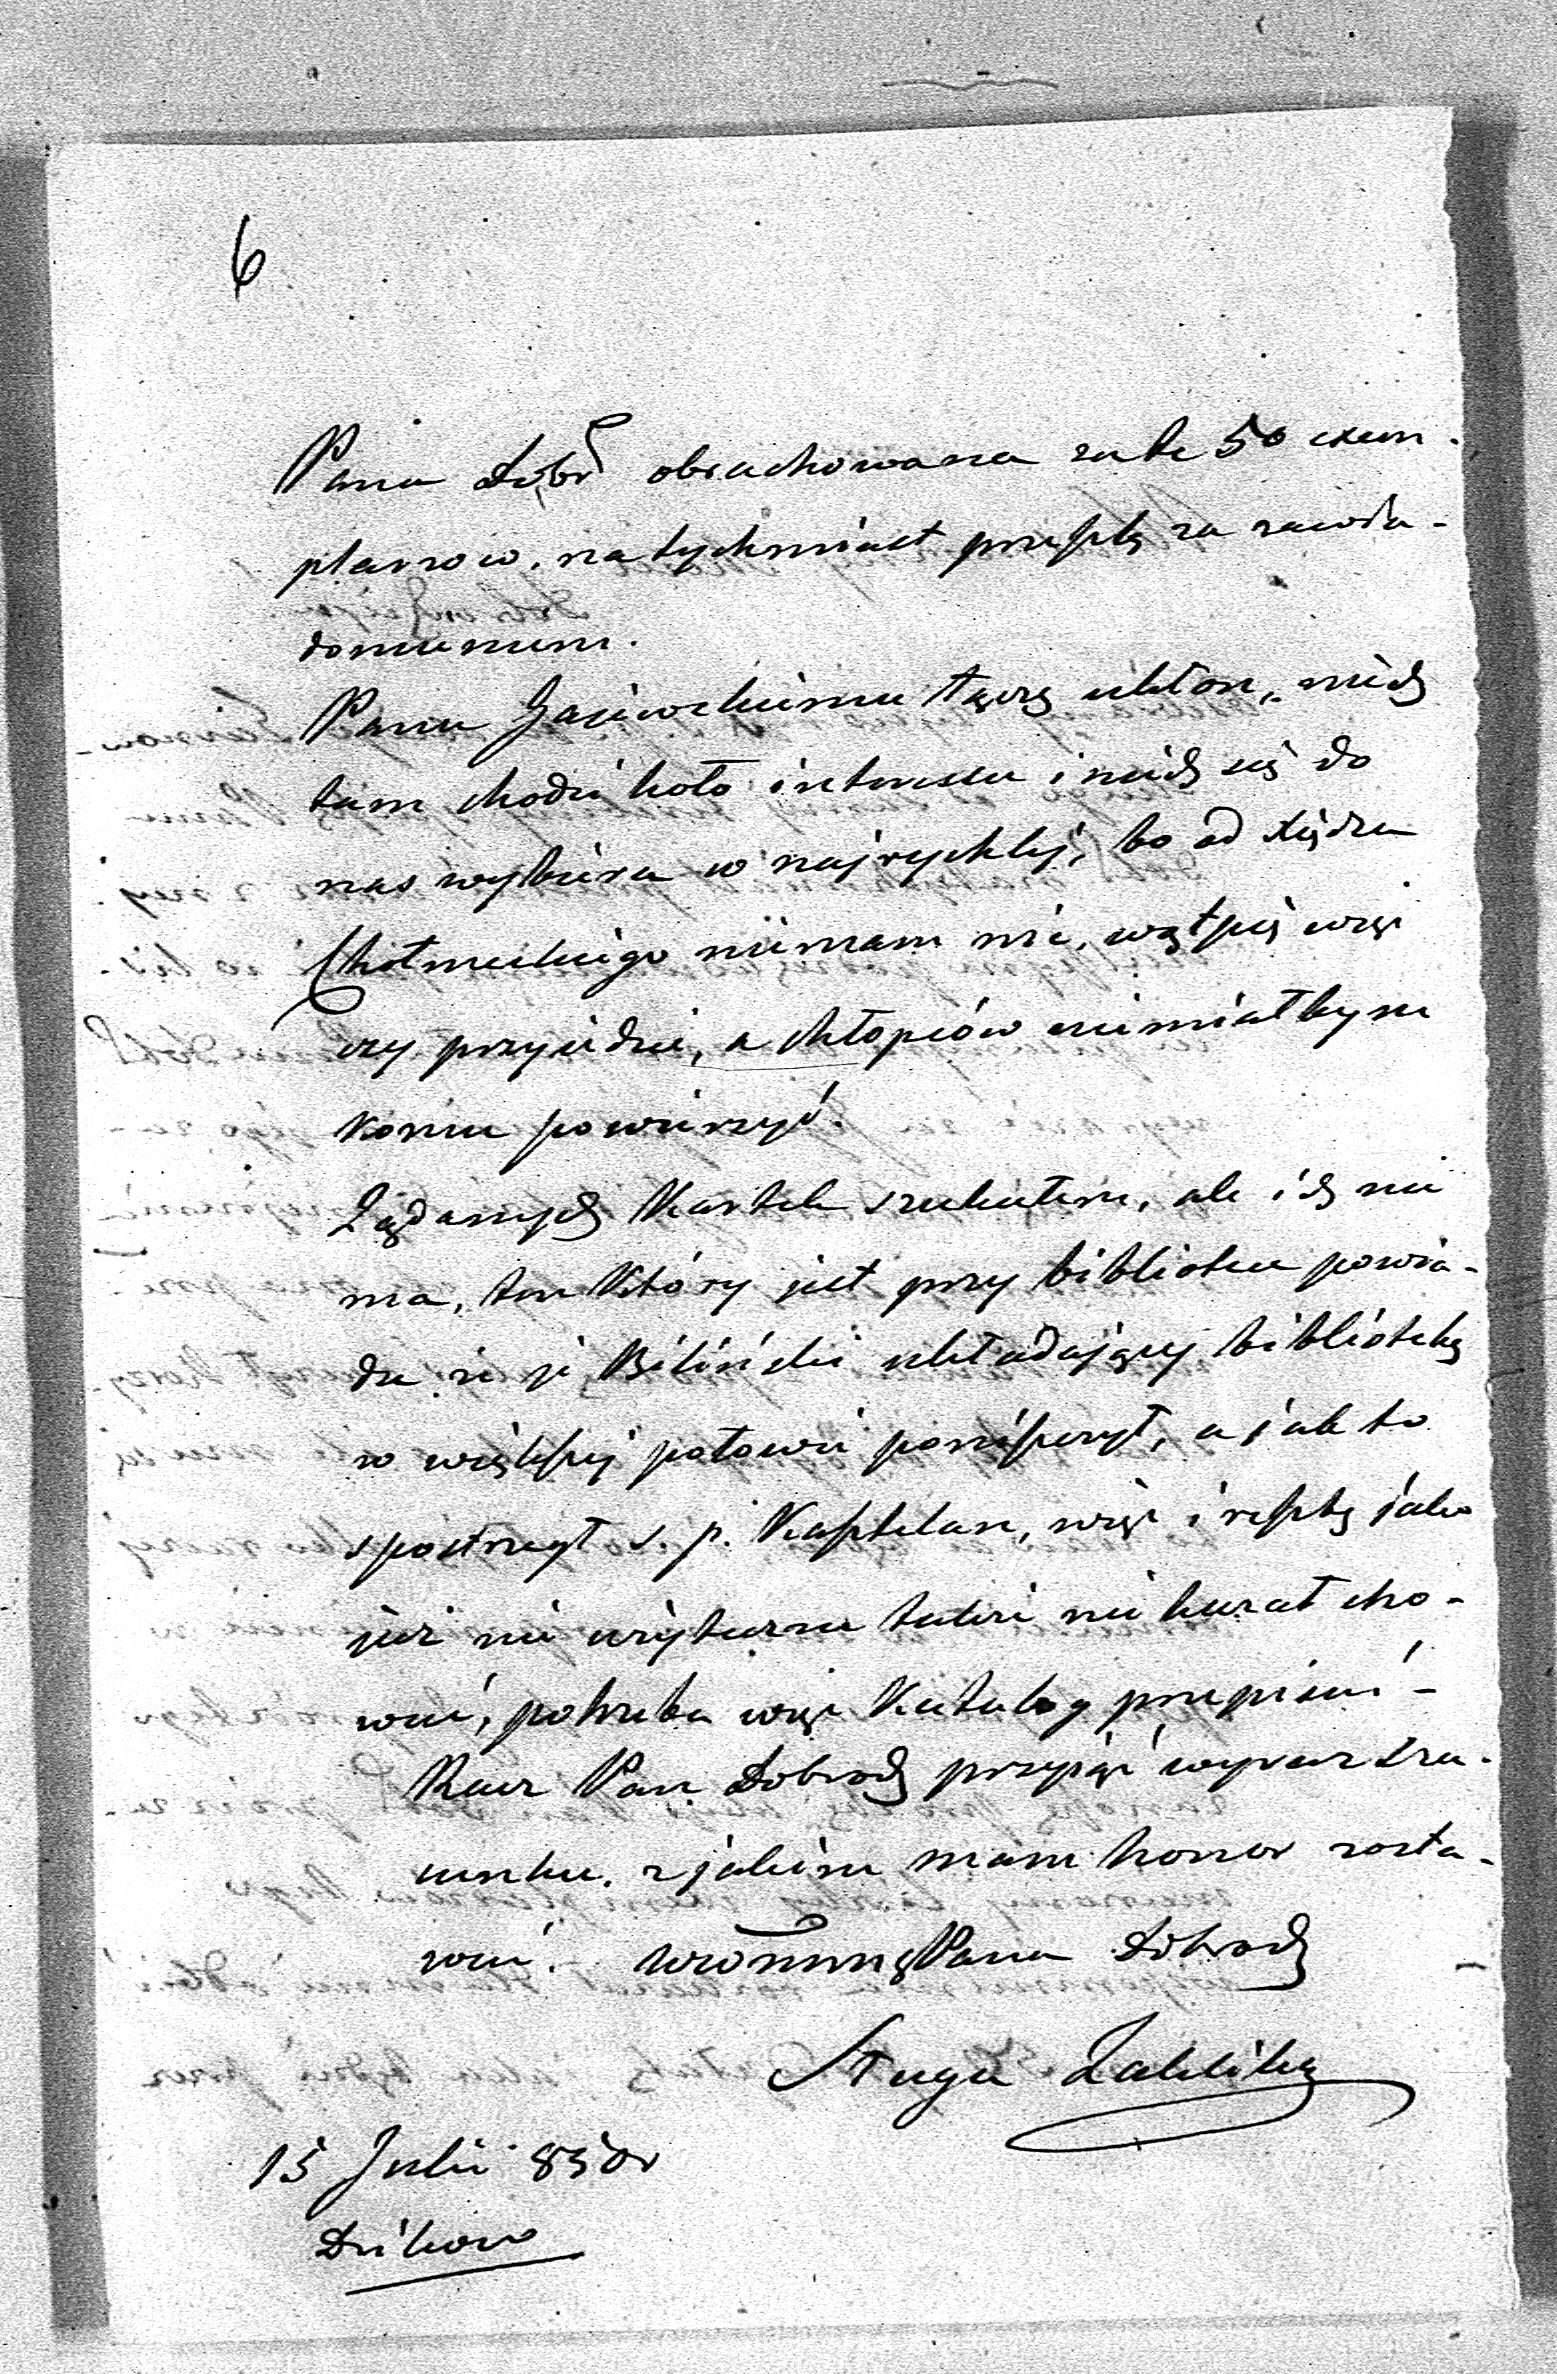 6
Pana Dobr obrachowana za te 50 exem-
plarzow, natychmiast przeszlę za zawia-
domieniem.
Panu Jasiewskiemu łączę ukłon, niech
tam chodzi koło interessu i niech się do
nas wybiera w najrychlej, bo od księdza
Chotmeckiego niemam nic, wątpię więc
czy przyjedzie, a chłopców niemiałbym
komu powierzyć.
Żądanych Kartek szukałem, ale ich nie
ma, ten który jest przy bibliotece powia-
da że je Biliński układający bibliotekę
w większej połowie poniszczył, a jak to
spostrzegł ś. p. Kasztelan, więc i resztę jako
już nie użyteczne także nie kazał cho-
wać, potrzeba więc Katalog przepisać -
Racz Pan Dobrodz przyjąć wyraz sza-
cunku, z jakim mam honor zosta-
wać. Pana Dobrodz
Sługa Zaklika
15 Julii 850r
Dzików